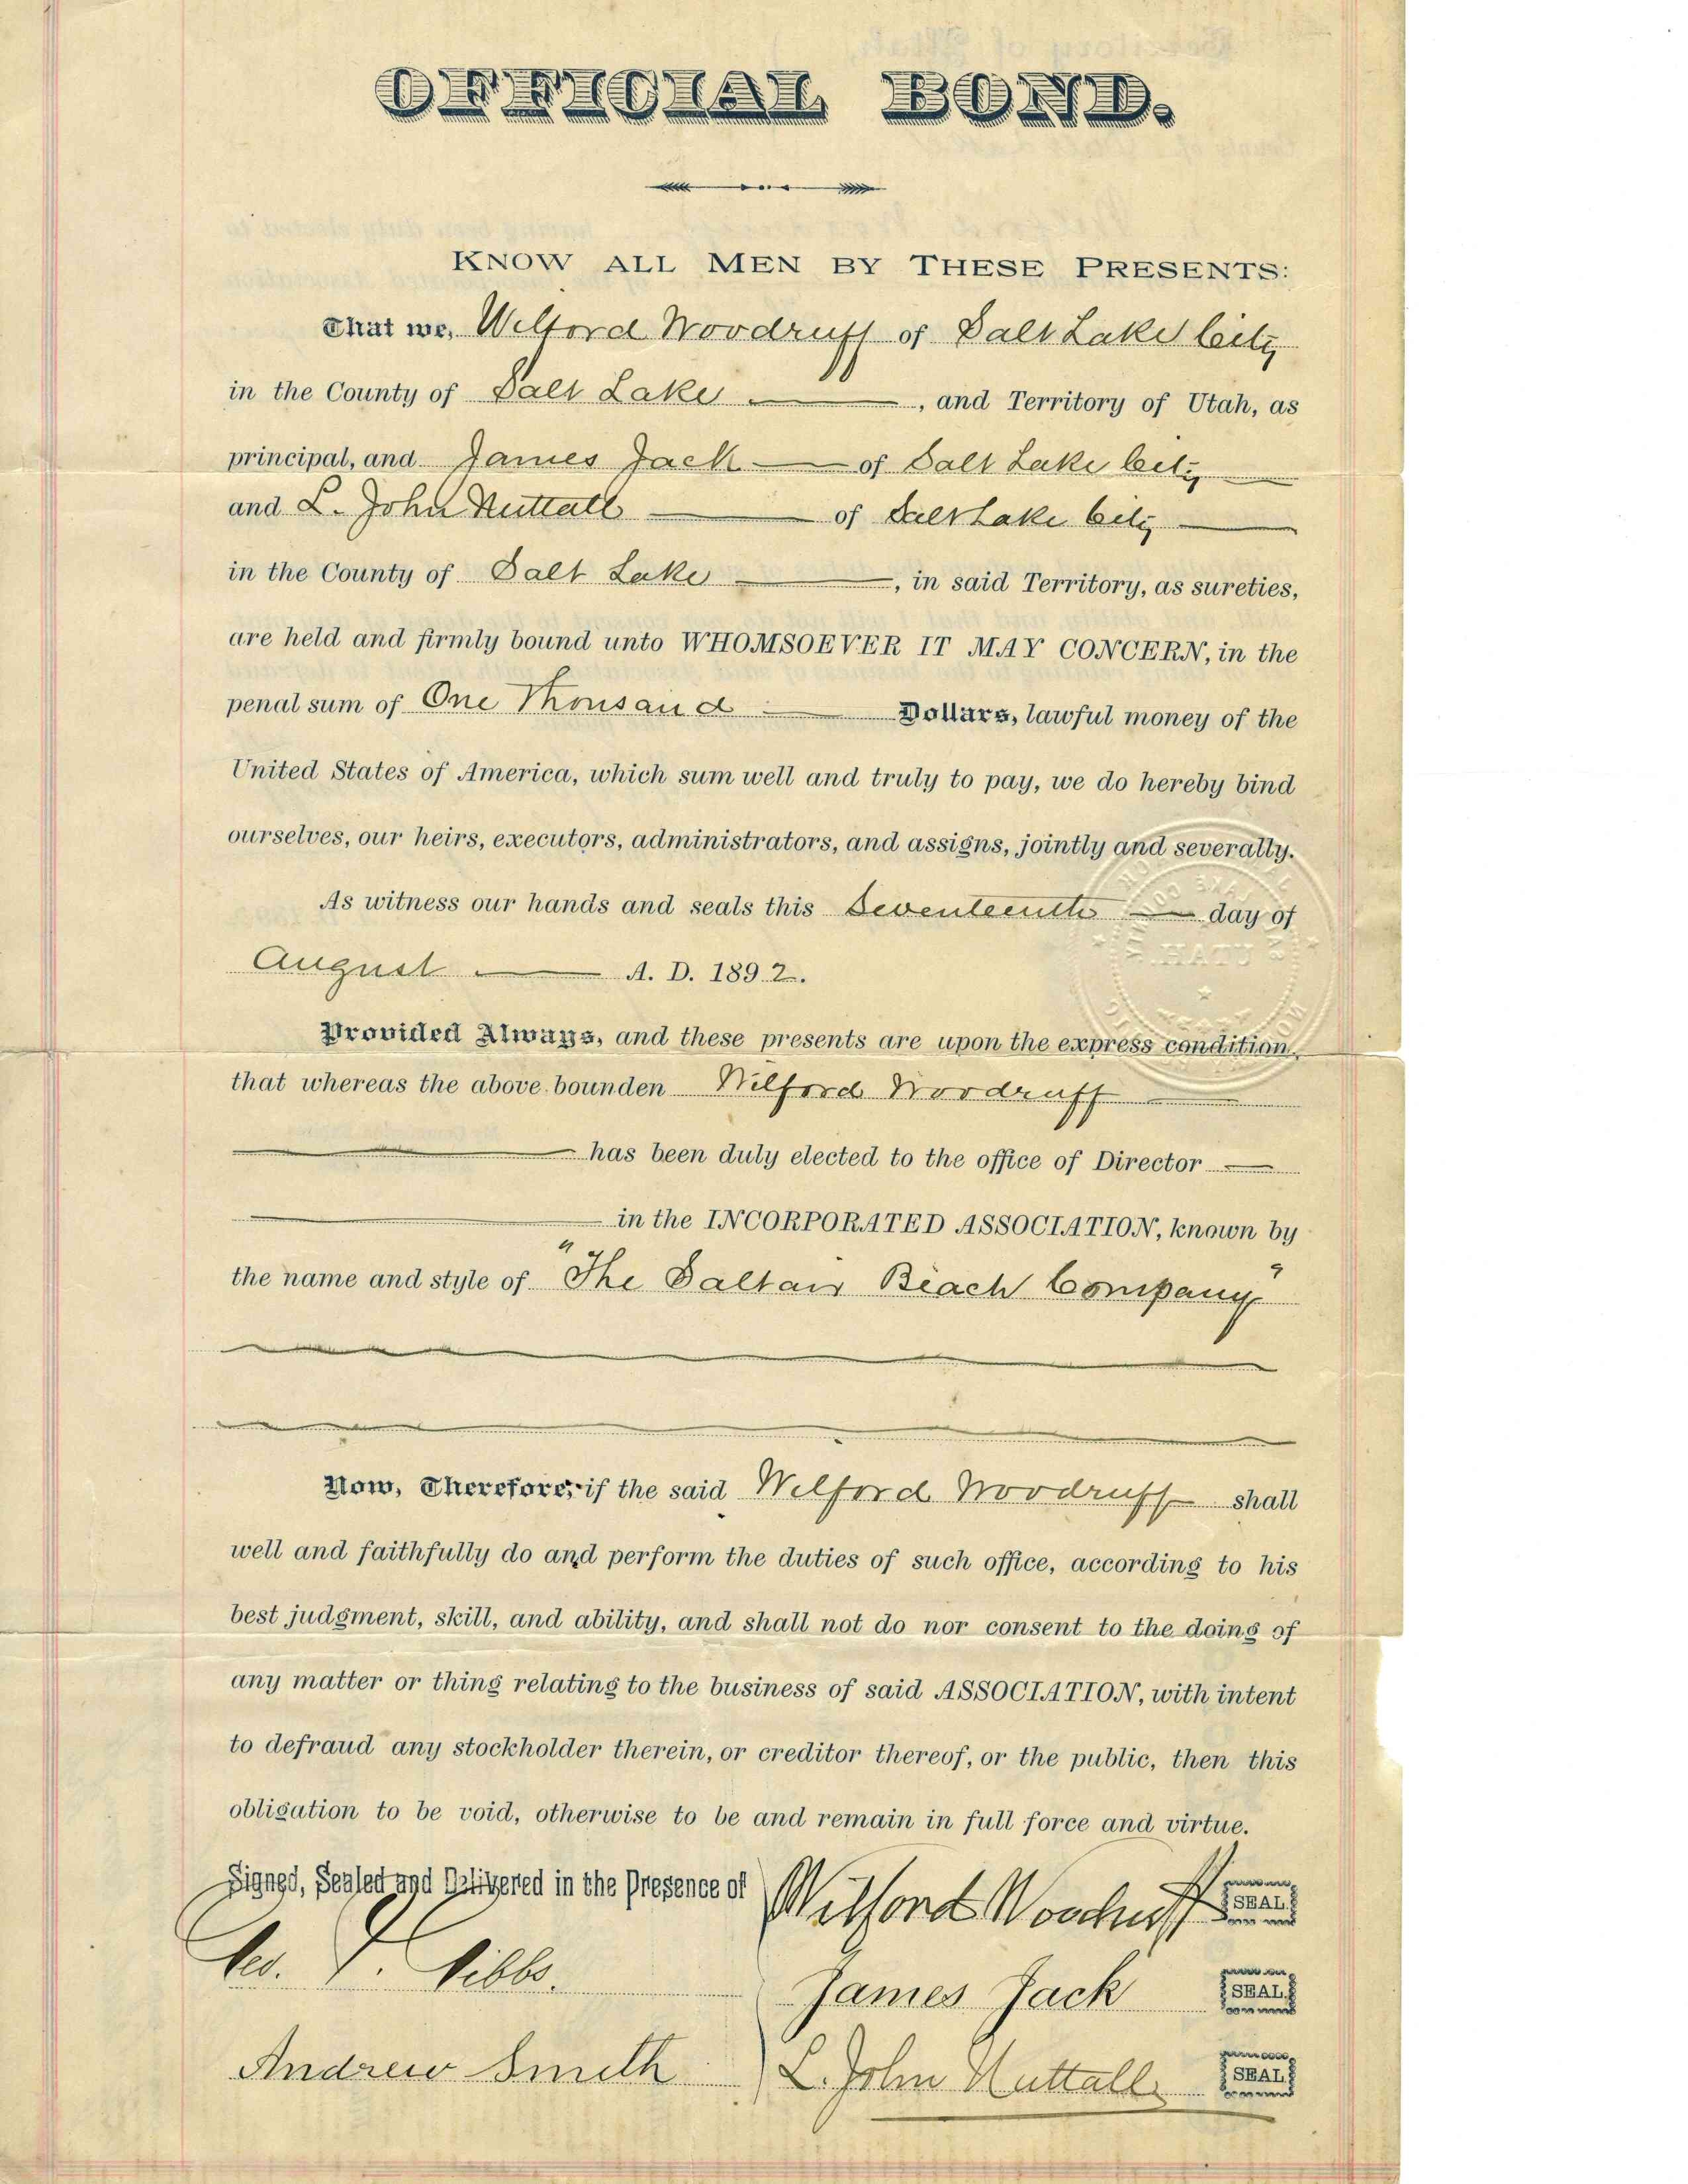 OFFICIAL BOND.
KNOW ALL MEN BY THESE PRESENTS:
That we, Wilford Woodruff of Salt Lake City
in the County of Salt Lake, and Territory of Utah, as
principal, and James Jack of Salt Lake City
and L. John Nuttall of Salt Lake City
in the County of Salt Lake, in said Territory, as sureties,
are held and firmly bound unto WHOMSOEVER IT MAY CONCERN, in the
penal sum of One Thousand Dollars, lawful money of the
United States of America, which sum well and truly to pay, we do hereby bind
ourselves, our heirs, executors, administrators, and assigns, jointly and severally.
As witness our hands and seals this Seventeenth day of
August A. D. 1892.
Provided Always, and these presents are upon the express condition,
that whereas the above bounden Wilford Woodruff
has been duly elected to the office of Director
in the INCORPORATED ASSOCIATION, known by
the name and style of "The Saltair Beach Company"
Now, Therefore, if the said Wilford Woodruff shall
well and faithfully do and perform the duties of such office, according to his
best judgment, skill, and ability, and shall not do nor consent to the doing of
any matter or thing relating to the business of said ASSOCIATION, with intent
to defraud any stockholder therein, or creditor thereof, or the public, then this
obligation to be void, otherwise to be and remain in full force and virtue.
Signed, Sealed and Delivered in the Presence of
Wilford Woodruff SEAL
Geo. F. Gibbs.
James Jack SEAL
Andrew Smith
L. John Nuttall SEAL
UTAH.